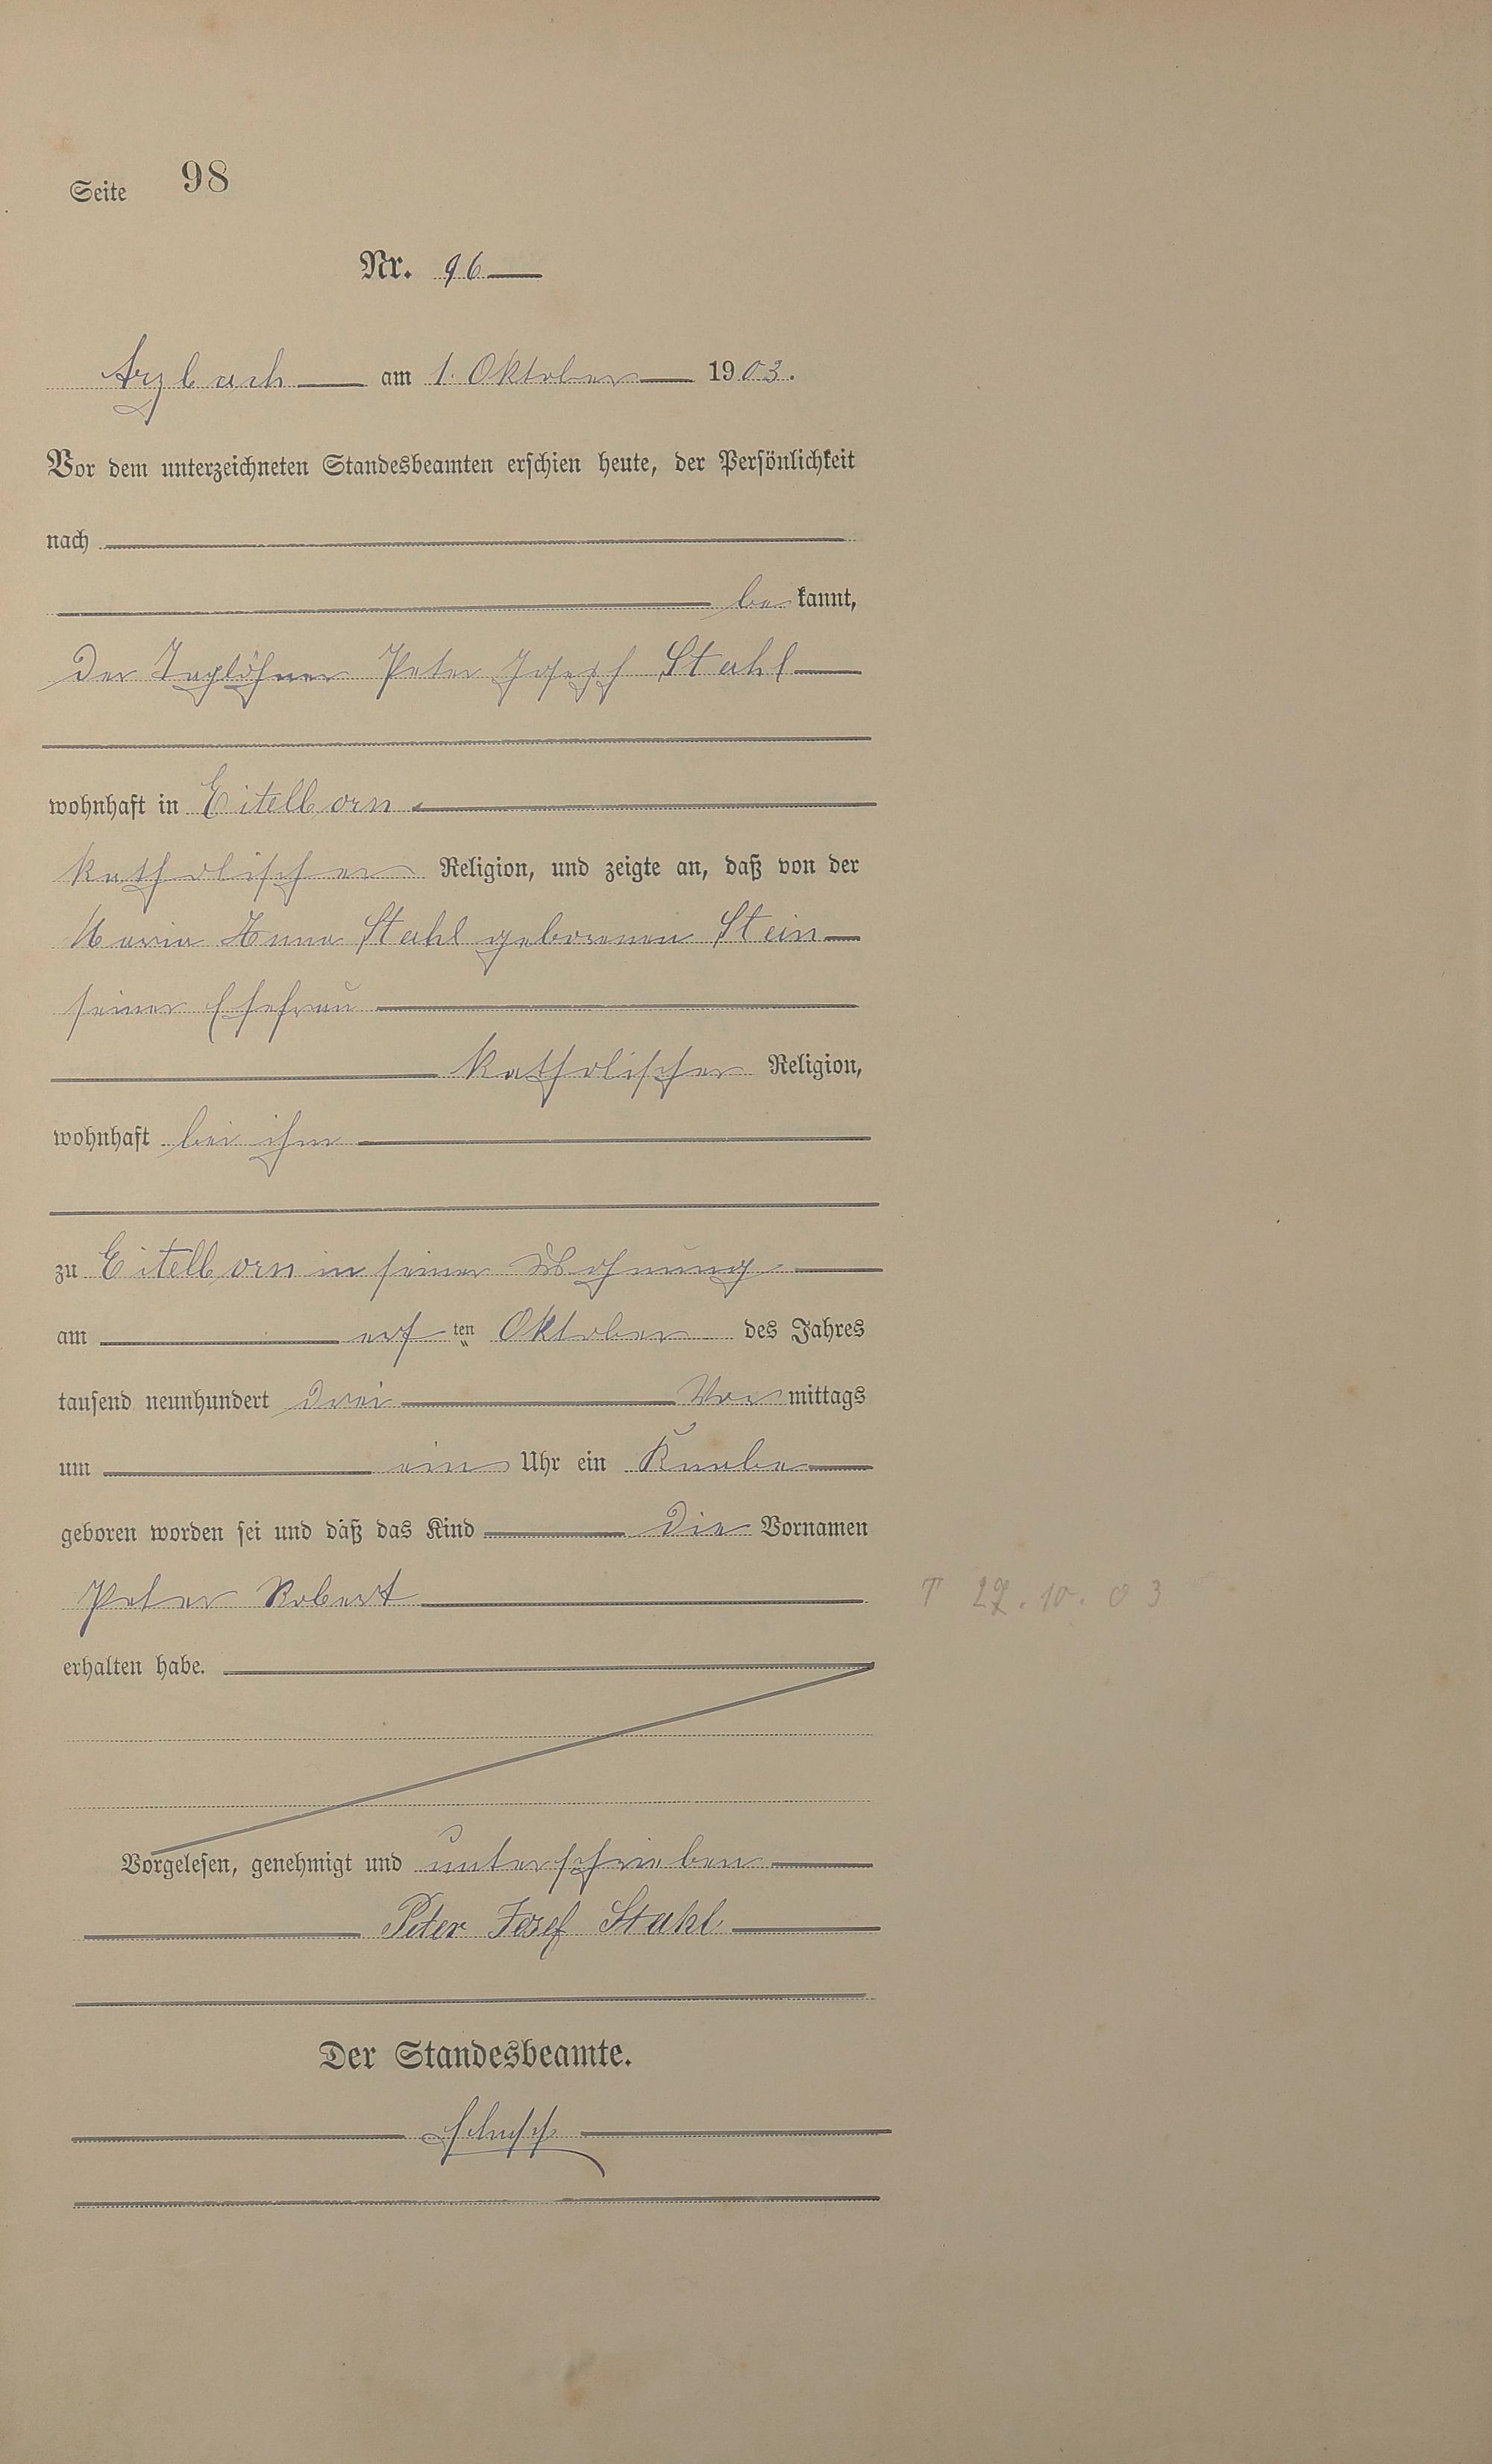 Seite 98
Nr. 96
Arzbach am 1. Oktober 1903.
Vor dem unterzeichneten Standesbeamten erschien heute, der Persönlichkeit
nach
bekannt,
Der Taglöhner Peter Joseph Stahl
wohnhaft in Eitelborn
katholischer Religion, und zeigte an, daß von der
Maria Anna Stahl geborenen Stein
seiner Ehefrau
katholischer Religion,
wohnhaft bei ihm
zu Eitelborn in seiner Wohnung
am ersten Oktober des Jahres
tausend neunhundert drei Vormittags
um ein Uhr ein Knabe
geboren worden sei und daß das Kind die Vornamen
Peter Robert
T 27.10.03
erhalten habe.
Vorgelesen, genehmigt und unterschrieben
Peter Josef Stahl
Der Standesbeamte.